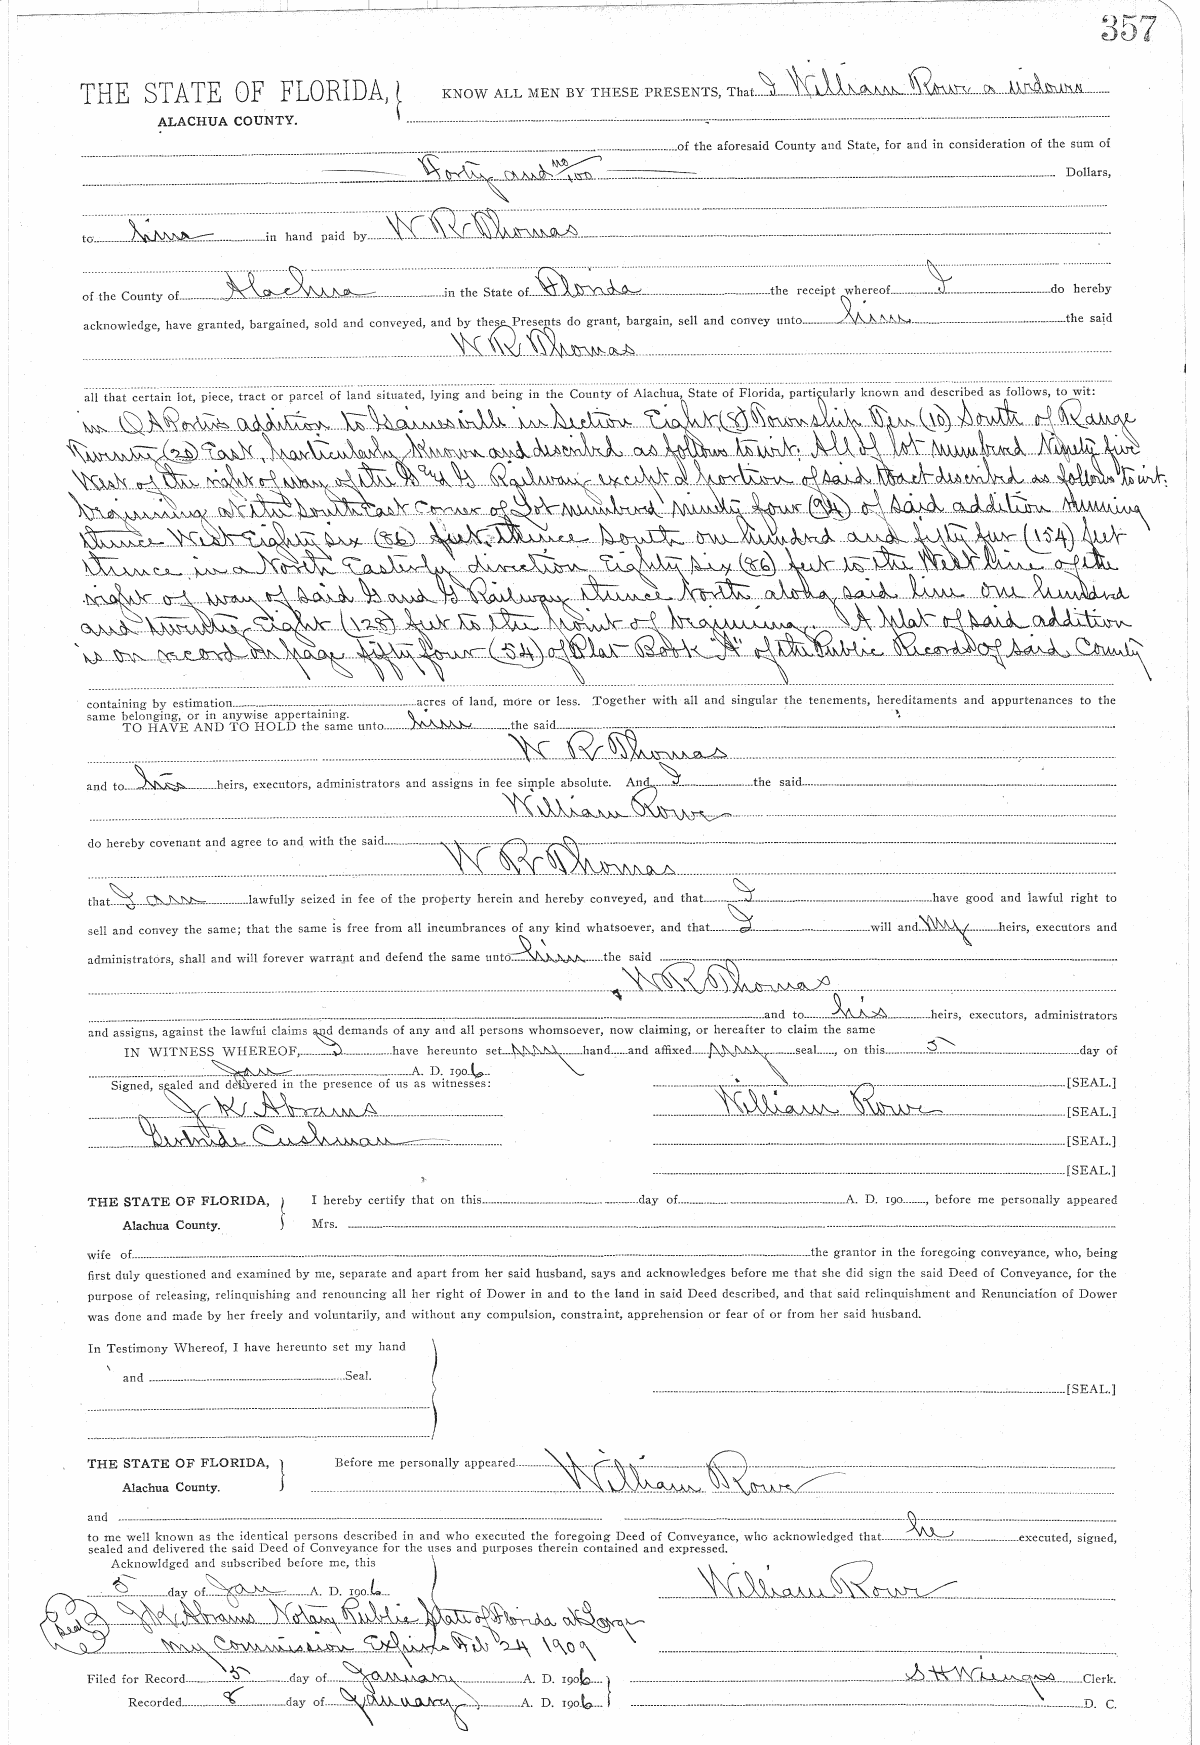 357
THE STATE OF FLORIDA, KNOW ALL MEN BY THESE PRESENTS, That I William Rowe a widower
ALACHUA COUNTY.
of the aforesaid County and State, for and in consideration of the sum of
Forty and no/100 Dollars,
to him in hand paid by W R Thomas
of the County of Alachua in the State of Florida the receipt whereof I do hereby
acknowledge, have granted, bargained, sold and conveyed, and by these Presents do grant, bargain, sell and convey unto him the said
W R Thomas
all that certain lot, piece, tract or parcel of land situated, lying and being in the County of Alachua, State of Florida, particularly known and described as follows, to wit:
in O A Porters addition to Gainesville in Section Eight (8) Township Ten (10) South of Range
Twenty (20) East, particularly known and described as follows to wit: All of lot numbered Ninety five
West of the right of way of the G & G Railway except a portion of said tract described as follows to wit:
beginning at the South East corner of Lot numbered ninety four (94) of said addition running
thence West Eighty six (86) feet, thence South one hundred and fifty fur (154) feet
thence in a North Easterly direction Eighty six (86) feet to the West line of the
right of way of said G and G Railway thence North along said line one hundred
and twenty Eight (128) feet to the point of beginning. A plat of said addition
is on record on page fifty four (54) of Plat Book "A" of the Public Records of said County
containing by estimation acres of land, more or less. Together with all and singular the tenements, hereditaments and appurtenances to the
same belonging, or in anywise appertaining.
TO HAVE AND TO HOLD the same unto him the said
W R Thomas
and to his heirs, executors, administrators and assigns in fee simple absolute. And I the said
William Rowe
do hereby covenant and agree to and with the said
W R Thomas
that I am lawfully seized in fee of the property herein and hereby conveyed, and that I have good and lawful right to
sell and convey the same; that the same is free from all incumbrances of any kind whatsoever, and that I will and my heirs, executors and
administrators, shall and will forever warrant and defend the same unto him the said
W R Thomas
and to his heirs, executors, administrators
and assigns, against the lawful claims and demands of any and all persons whomsoever, now claiming, or hereafter to claim the same
IN WITNESS WHEREOF, I have hereunto set my hand and affixed my seal, on this 5 day of
Jan A. D. 1906
Signed, sealed and delivered in the presence of us as witnesses: [SEAL.]
J K Abrams William Rowe [SEAL.]
Gertrude Cushman [SEAL.]
[SEAL.]
THE STATE OF FLORIDA, I hereby certify that on this day of A. D. 190, before me personally appeared
Alachua County. Mrs.
wife of the grantor in the foregoing conveyance, who, being
first duly questioned and examined by me, separate and apart from her said husband, says and acknowledges before me that she did sign the said Deed of Conveyance, for the
purpose of releasing, relinquishing and renouncing all her right of Dower in and to the land in said Deed described, and that said relinquishment and Renunciation of Dower
was done and made by her freely and voluntarily, and without any compulsion, constraint, apprehension or fear of or from her said husband.
In Testimony Whereof, I have hereunto set my hand
and Seal.
[SEAL.]
THE STATE OF FLORIDA, Before me personally appeared William Rowe
Alachua County.
and
to me well known as the identical persons described in and who executed the foregoing Deed of Conveyance, who acknowledged that he executed, signed,
sealed and delivered the said Deed of Conveyance for the uses and purposes therein contained and expressed.
Acknowldged and subscribed before me, this
5 day of Jan A. D. 1906 William Rowe
Seal J K Abrams Notary Public State of Florida at Large
My Commission Expires Feb 24 1909
Filed for Record 5 day of January A. D. 1906 S H Wienges Clerk.
Recorded 8 day of January A. D. 1906 D. C.